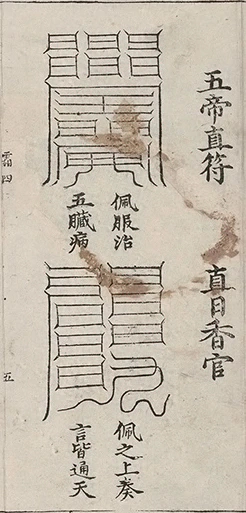 五帝直符
佩服治
五臟病
直日香官
佩之上奏
言皆通天
四
五